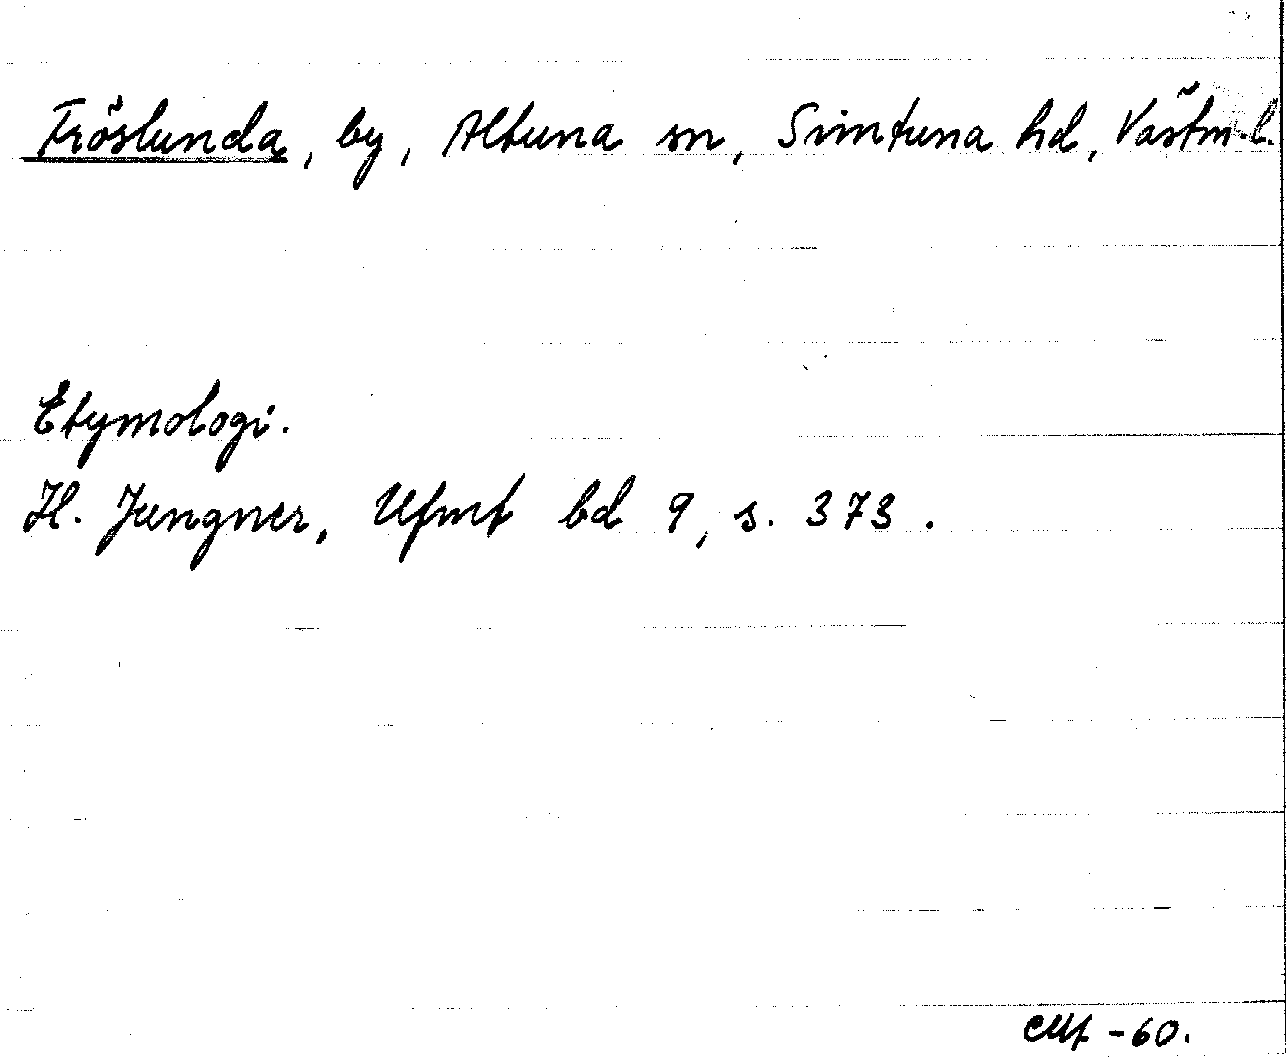 Fröslunda, by, Altuna sn, Simtuna hd, Västm. l.
Etymologi.
H. Jungner, Ufmt bd 9, s. 373.
-60.